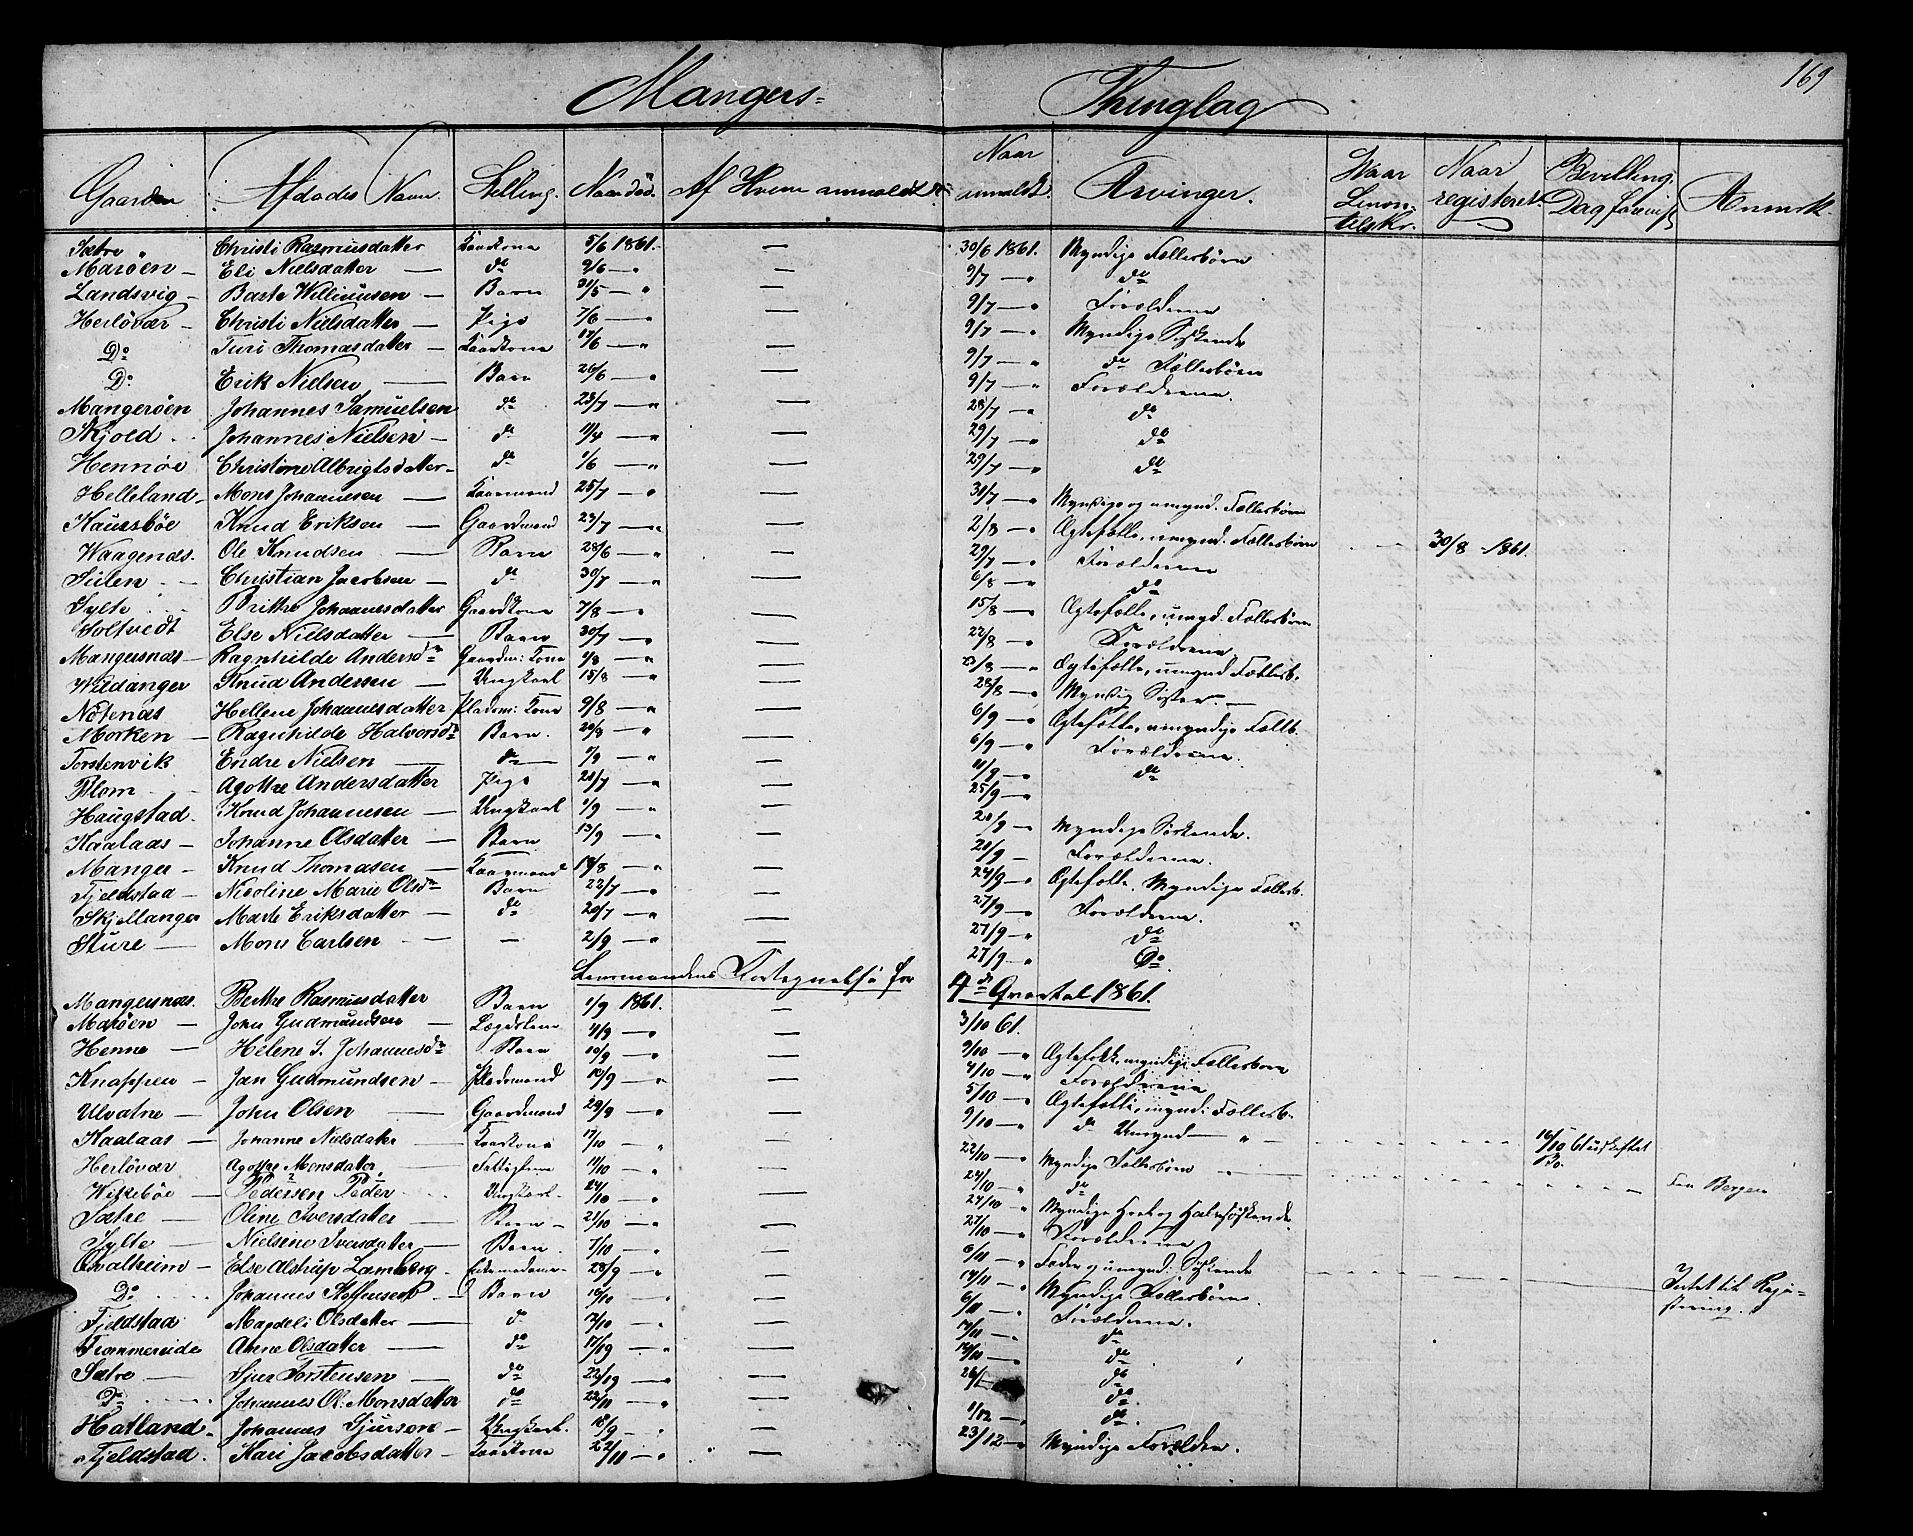 169
Mangers= Thinglag
Gaarden Afdødes Navn. Stilling. Naar død. Af Hvem anmeldt Naar anmeldt. Arvinger. Naar registeret Bevilling. Anmrk.
Sætre Christi Rasmusdatter Kaarkona 5/6 1861. — 30/6 1861. Myndige Fællesbørn
Marøen — Eli Nielsdatter — do 9/6 — " — 9/7 — " do
Landsvig — Barte Williumsen — Barn 31/5 — " — 9/7 — " Forældrene
Herløvær — Christi Nielsdatter — Pige 7/6 — " — 9/7 — " Myndige Søskende
Do Turi Thomasdatter — Kaarkona 17/6 — " — 9/7 — " do Fællesbørn
Do Erik Nielsen — Barn 26/6 — " — 9/7 — " Forældrene
Mangerøen Johannes Samuelsen do 23/7 — " — 28/7 — " do
Skjold Johannes Nielsen — do 11/4 — " — 29/7 — " do
Hennøe Christine Albrigtsdatter — do 1/6 — " — 29/7 — " do
Helleland — Mons Johannesen — Kaarmand 25/7 — " — 30/7 — " Myndige og umynd. Fællesbørn
Hausbøe Knud Eriksen — Gaardmand 23/7 — " — 2/8 — " Ægtefælle, umynd. Fællesbørn 30/8 - 1861.
Waagenæs. Ole Knudsen — Barn 28/6 — " — 29/7 — " Forældrene
Sulen Christian Jacobsen — do 30/7 — " — 6/8 — " do
Sylte Brithe Johannesdatter Gaardkona 7/8 — " — 15/8 — " Ægtefælle, umynd. Fællesbørn
Holtvedt Else Nielsdatter — Barn 30/7 — " — 22/8 — " Forældrene
Mangersnæs — Ragnhilde Andersdr Gaardm: Kona 4/8 — " — 23/8 — " Ægtefælle, umynd Fællesb.
Wildanger Knud Andersen — Ungkarl 15/8 — " — 28/8 — " Myndig Søster. —
Nøtenæs Hellene Johannesdatter Pladsm: Kona 9/8 — " — 6/9 — " Ægtefælle, umyndige Fællb.
Morken — Ragnhilde Halvorsdr Barn. 29/8 — " — 6/9 — " Forældrene.
Torstenvik Endre Nielsen — do 1/9 — " — 11/9 — " do
Blom Agothe Andersdatter Pige 20/7 — " — 25/9 — "
Haugstad. Knud Johannesen — Ungkarl 1/9 — " — 20/9 — " Myndige Søskende.
Kaalaas — Johanne Olsdatter — Barn 13/9 — " — 20/9 — Forældrene.
Manger — Knud Thomasen — Kaarmand 18/8 — " — 24/9 — " Ægtefælle, Myndige Fællesb.
Fjeldstad — Nicoline Marie Olsdr Barn 22/7 — " — 27/9 — " Forældrene.
Skjellanger Marte Eriksdatter — do 20/7 — " — 27/9 — " do
Sture — Mons Carlsen — 2/9 — " — 27/9 — " Do
Lensmandens Fortegnelse for 4de Qvartal 1861.
Mangersnæs. Berthe Rasmusdatter Barn 1/9 1861. — 3/10 61.
Marøen — John Gudmundsen — Lægdslem 4/9 — " — 9/10 — " Ægtefolk, myndige Fællesbørn
Henne — Helene S. Johannesdr Barn 10/9 — " — 4/10 — " Forældrene
Knappen — Jan Gudmundsen — Pladsmand 10/9 — " — 5/10 — " Ægtefælle, umynd: Fællesb.
Ulvatne — John Olsen — Gaardmand 29/9 — " — 9/10 — " do Umynd — " —
Kaalaas — Johanne Nielsdatter Kaarkona 17/10 — " — 22/10 — " Myndige Fællesbørn 16/10 61 uskiftet Bo.
Herløvær Agothe Monsdatter Fattiglem 11/10 — " — 24/10 — " do Fra Bergen
Wikebøe — Pedersen Peder Ungkarl. 24/10 — " — 24/10 — " Myndige Heel og Halvsøskende
Sætre — Oline Iversdatter — Barn — 21/10 — " — 27/10 — " Forældrene
Sylte — Nielsine Iversdatter — Barn. 7/10 — " — 6/11 — " Fader og umynd: Søskende
Qvalheim — Else Alstrup Lamberg — 23/9 — " — 14/11 — " Myndige Fællesbørn. Intet til Registrering.
Do Johannes Steffensen — Barn 16/10 — " — 6/11 — " Forældrene.
Fjeldstad Magdeli Olsdatter — do 7/10 — " — 14/11 — " do
Trommereide Anne Olsdatter — do — " — 14/11 — " do
Sætre — Sjur Torstensen — do — " — do
Do Johannes Ol. Monsdatter do 22/11 — " — do
Hatland — Johannes Sjursen — Ungkarl. 18/9 — " — 1/12 — " do
Fjeldstad. Kari Jacobsdatter — Kaarkona 22/11 — " — 23/12 — " Myndige Forældre.